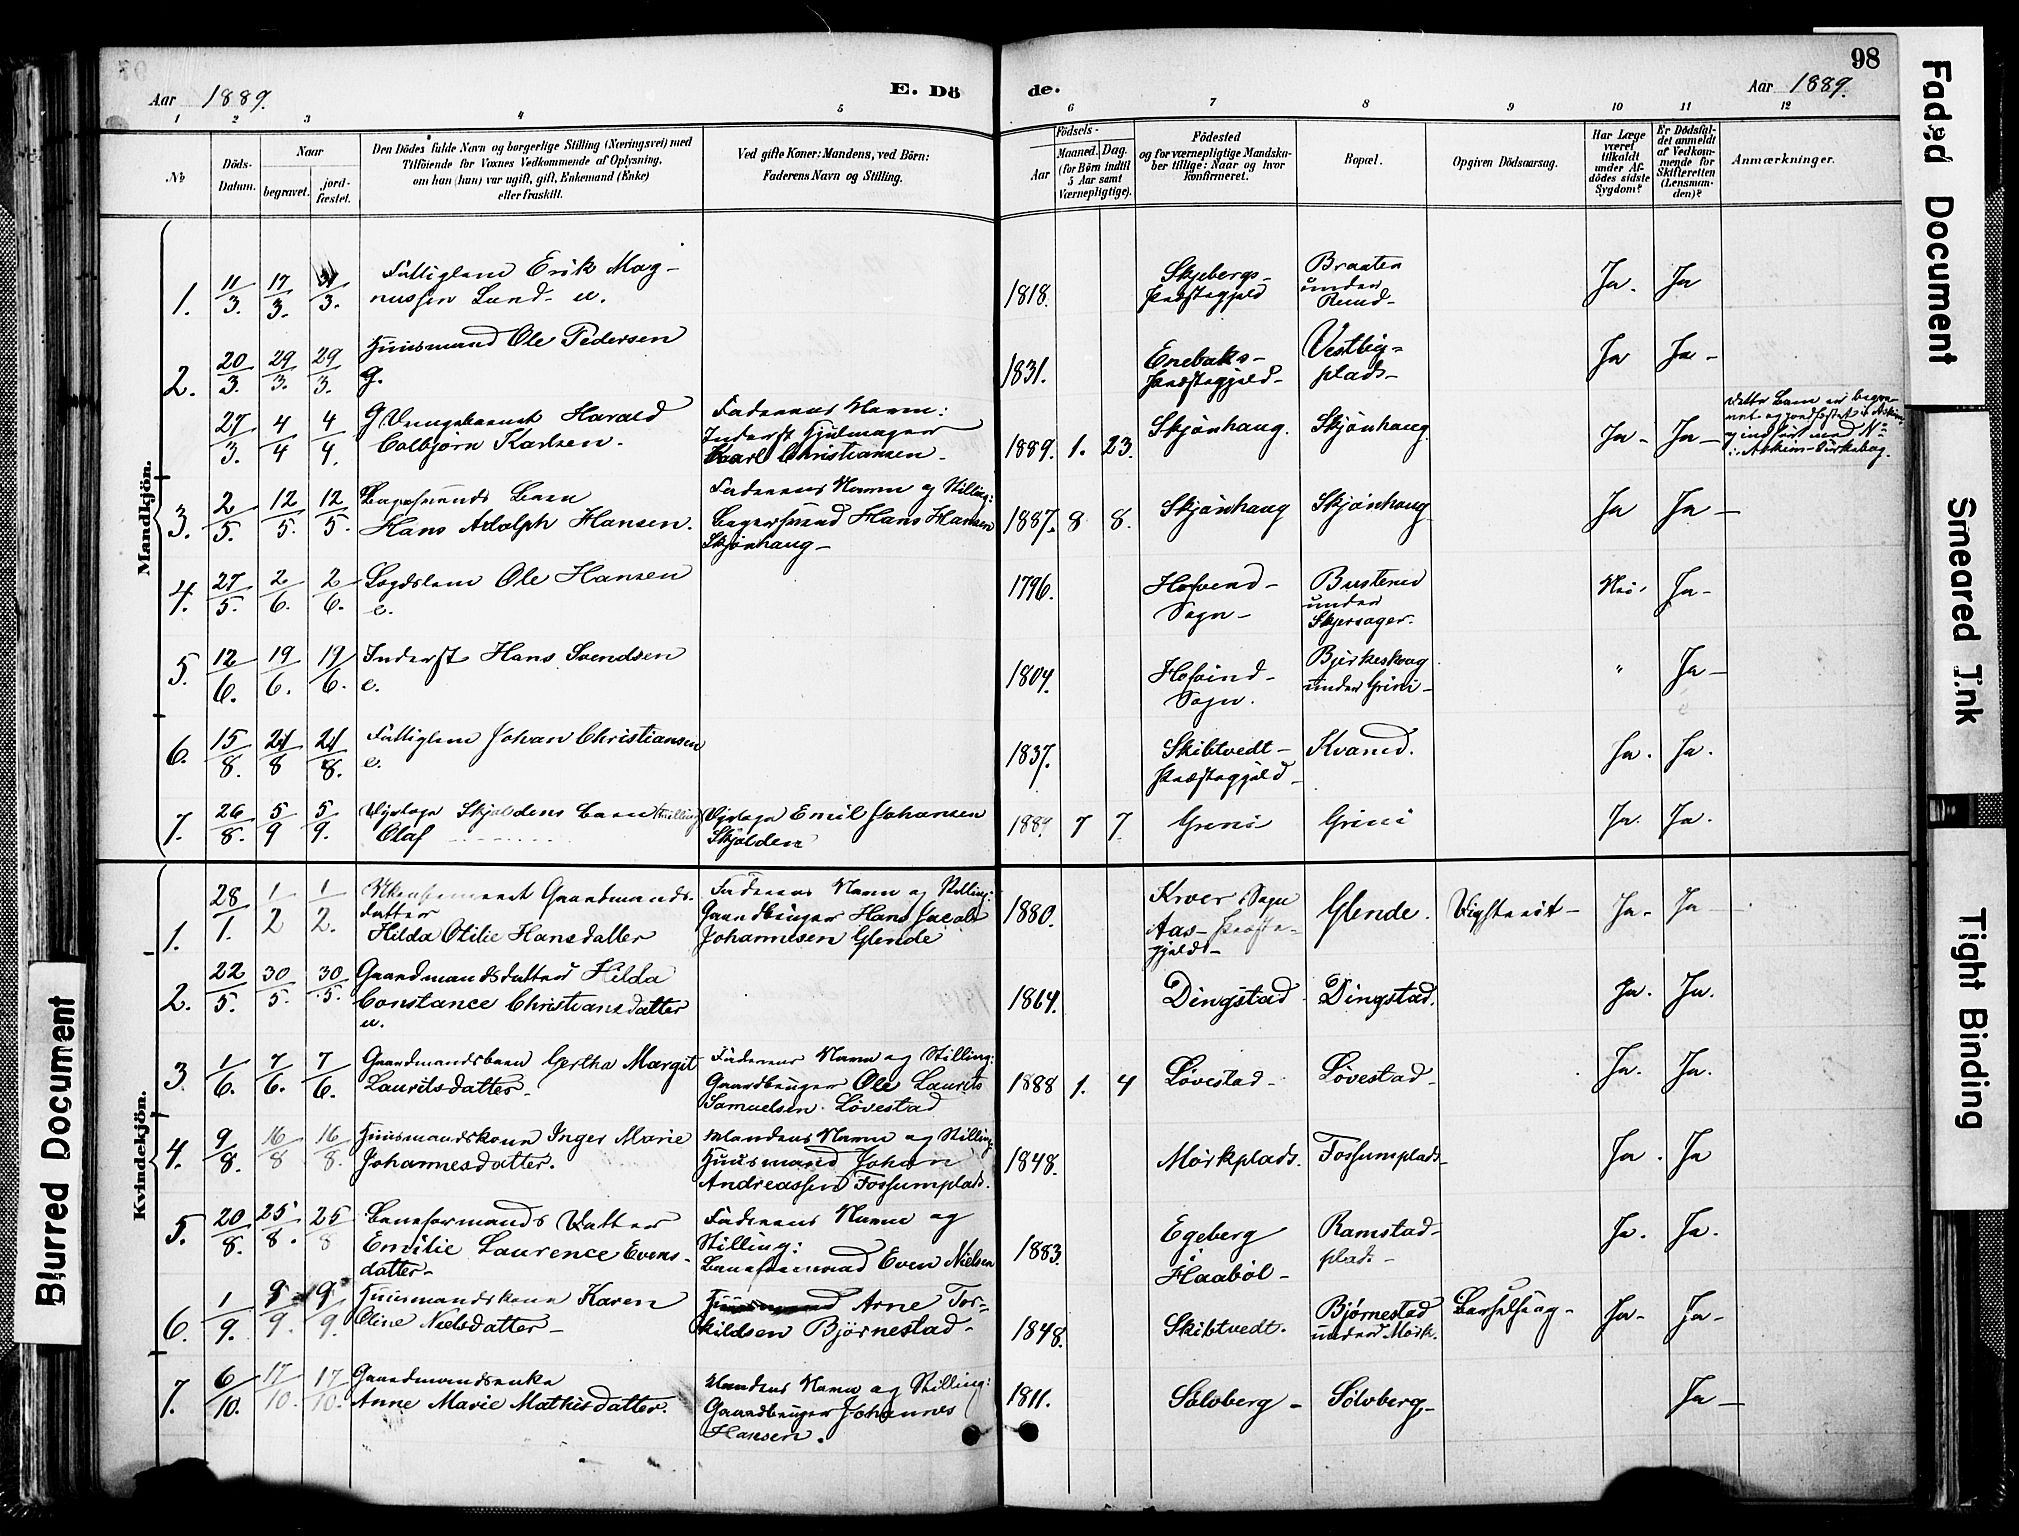 98
Aar 1889.
E. Dö
de.
Aar 1889.
1 2 3 4 5 6 7 8 9 10 11 12
No
Döds-
Datum.
Naar
begravet.
jord-
fæstet.
Den Dödes fulde Navn og borgerlige Stilling (Næringsvei) med
Tilföiende for Voxnes Vedkommende af Oplysning,
om han (hun) var ugift, gift, Enkemand (Enke)
eller fraskilt.
Ved gifte Koner: Mandens, ved Börn:
Faderens Navn og Stilling.
Födsels-
Aar
Maaned. Dag.
(for Börn indtil
5 Aar samt
Værnepligtige).
Födested
og for værnepligtige Mandska-
ber tillige: Naar og hvor
konfirmeret.
Bopæl.
Opgiven Dödsaarsag.
Har Læge
været
tilkaldt
under Af-
dödes sidste
Sygdom?
Er Dödsfal-
det anmeldt
af Vedkom-
mende for
Skifteretten
(Lensman-
den)?
Anmærkninger.
Mandkjön.
1. 11/3. 17/3. 31/3. Fattiglem Erik Mag-
nussen Lund- u.
1818. Skjebergs-
Præstegjeld
Braaten
under
Rund-
Ja. Ja
2. 20/3. 29/3. 29/3. Huusmand Ole Pedersen
g.
1831. Enebaks-
Præstegjeld-
Vestby-
plads-
Ja Ja-
27/3. 4/4 4/4. Harald
Colbjörn Karlsen.
Faderens Navn:
Inderst Hjulmager
Karl Christiansen.
1889. 1. 23. Skjönhaug. Skjönhaug. Ja- Ja-
Dette Barn er begra-
vet og jordfæstet i Askim
og indfört med No
i Askim Kirkebog.
3. 2/5. 12/5. 12/5. Barn
Hans Adolph Hansen.
Faderens Navn og Stilling:
Hans Hansen
Skjönhaug-
1887. 8 8. Skjönhaug Skjönhaug Ja Ja-
4. 27/5. 2/6. 2/6. Lægdslem Ole Hansen
e.
1796. Hofvind-
Sogn-
Busterud
under
Skjersager.
Nei. Ja-
5. 12/6. 19/6. 19/6. Inderst Hans Svendsen
e.
1804. Hofvind-
Sogn.
Bjerkeskoug
under Grini-
" Ja-
6. 15/8. 21/8 21/8. Fattiglem Johan Christiansen
e.
1837. Skibtvedt-
Præstegjeld-
Kvarud.
Ja. Ja.
7. 26/8. 5/9 5/9. Skjöldens Barn (tvilling)
Olaf
Emil Johansen
Skjölden
1889 7 7. Grini Grini Ja. Ja.
Kvindekjön.
1. 28/1. 1/2 1/2. Ukonfirmeret Gaardmands-
datter
Hilda Otilie Hansdatter
Faderens Navn og Stilling:
Gaardbruger Hans Jacob
Johannesen Glende
1880. Kroer Sogn
Aas- Præste-
gjeld-
Glende. Ja. Ja
2. 22/5. 30/5. 30/5. Gaardmandsdatter Hilda
Constance Christiansdatter
u.
1864. Dingstad Dingstad. Ja. Ja.
3. 1/6. 7/6. 7/6. Gaardmandsbarn Gertha Margit
Lauritsdatter-
Faderens Navn og Stilling:
Gaardbruger Ole Laurits
Samuelsen Lövestad
1888 1. 4 Lövestad- Lövestad- Ja. Ja.
4. 9/8. 16/8 16/8. Huusmandskone Inger Marie
Johannesdatter.
Mandens Navn og Stilling:
Huusmand Johan
Andreassen Fossumplads.
1848. Mörkplads. Fossumplads- Ja. Ja
5. 20/8. 25/8. 25/8 Baneformands Datter
Emilie Laurence Evens-
datter-
Faderens Navn og
Stilling:
Baneformand Even Nielsen
1883. Egeberg
i
Haaböl-
Ramstad-
plads-
Ja. Ja.
6. 1/9. 9/9. 9/9. Huusmandskone Karen
Oline Nielsdatter-
Huusmand Arne Tor-
kildsen Björnestad-
1848. Skibtvedt.
Björnestad
under Mörk.
Barselseng- Ja- Ja-
7. 6/10. 17/10. 17/10. Gaardmandsenke
Anne Marie Mathisdatter.
Mandens Navn og Stilling:
Gaardbruger Johannes
Hansen.
1811. Sölvberg- Sölvberg- Ja-
Faded Document
Smeared Ink
Tight Binding
Blurred Document